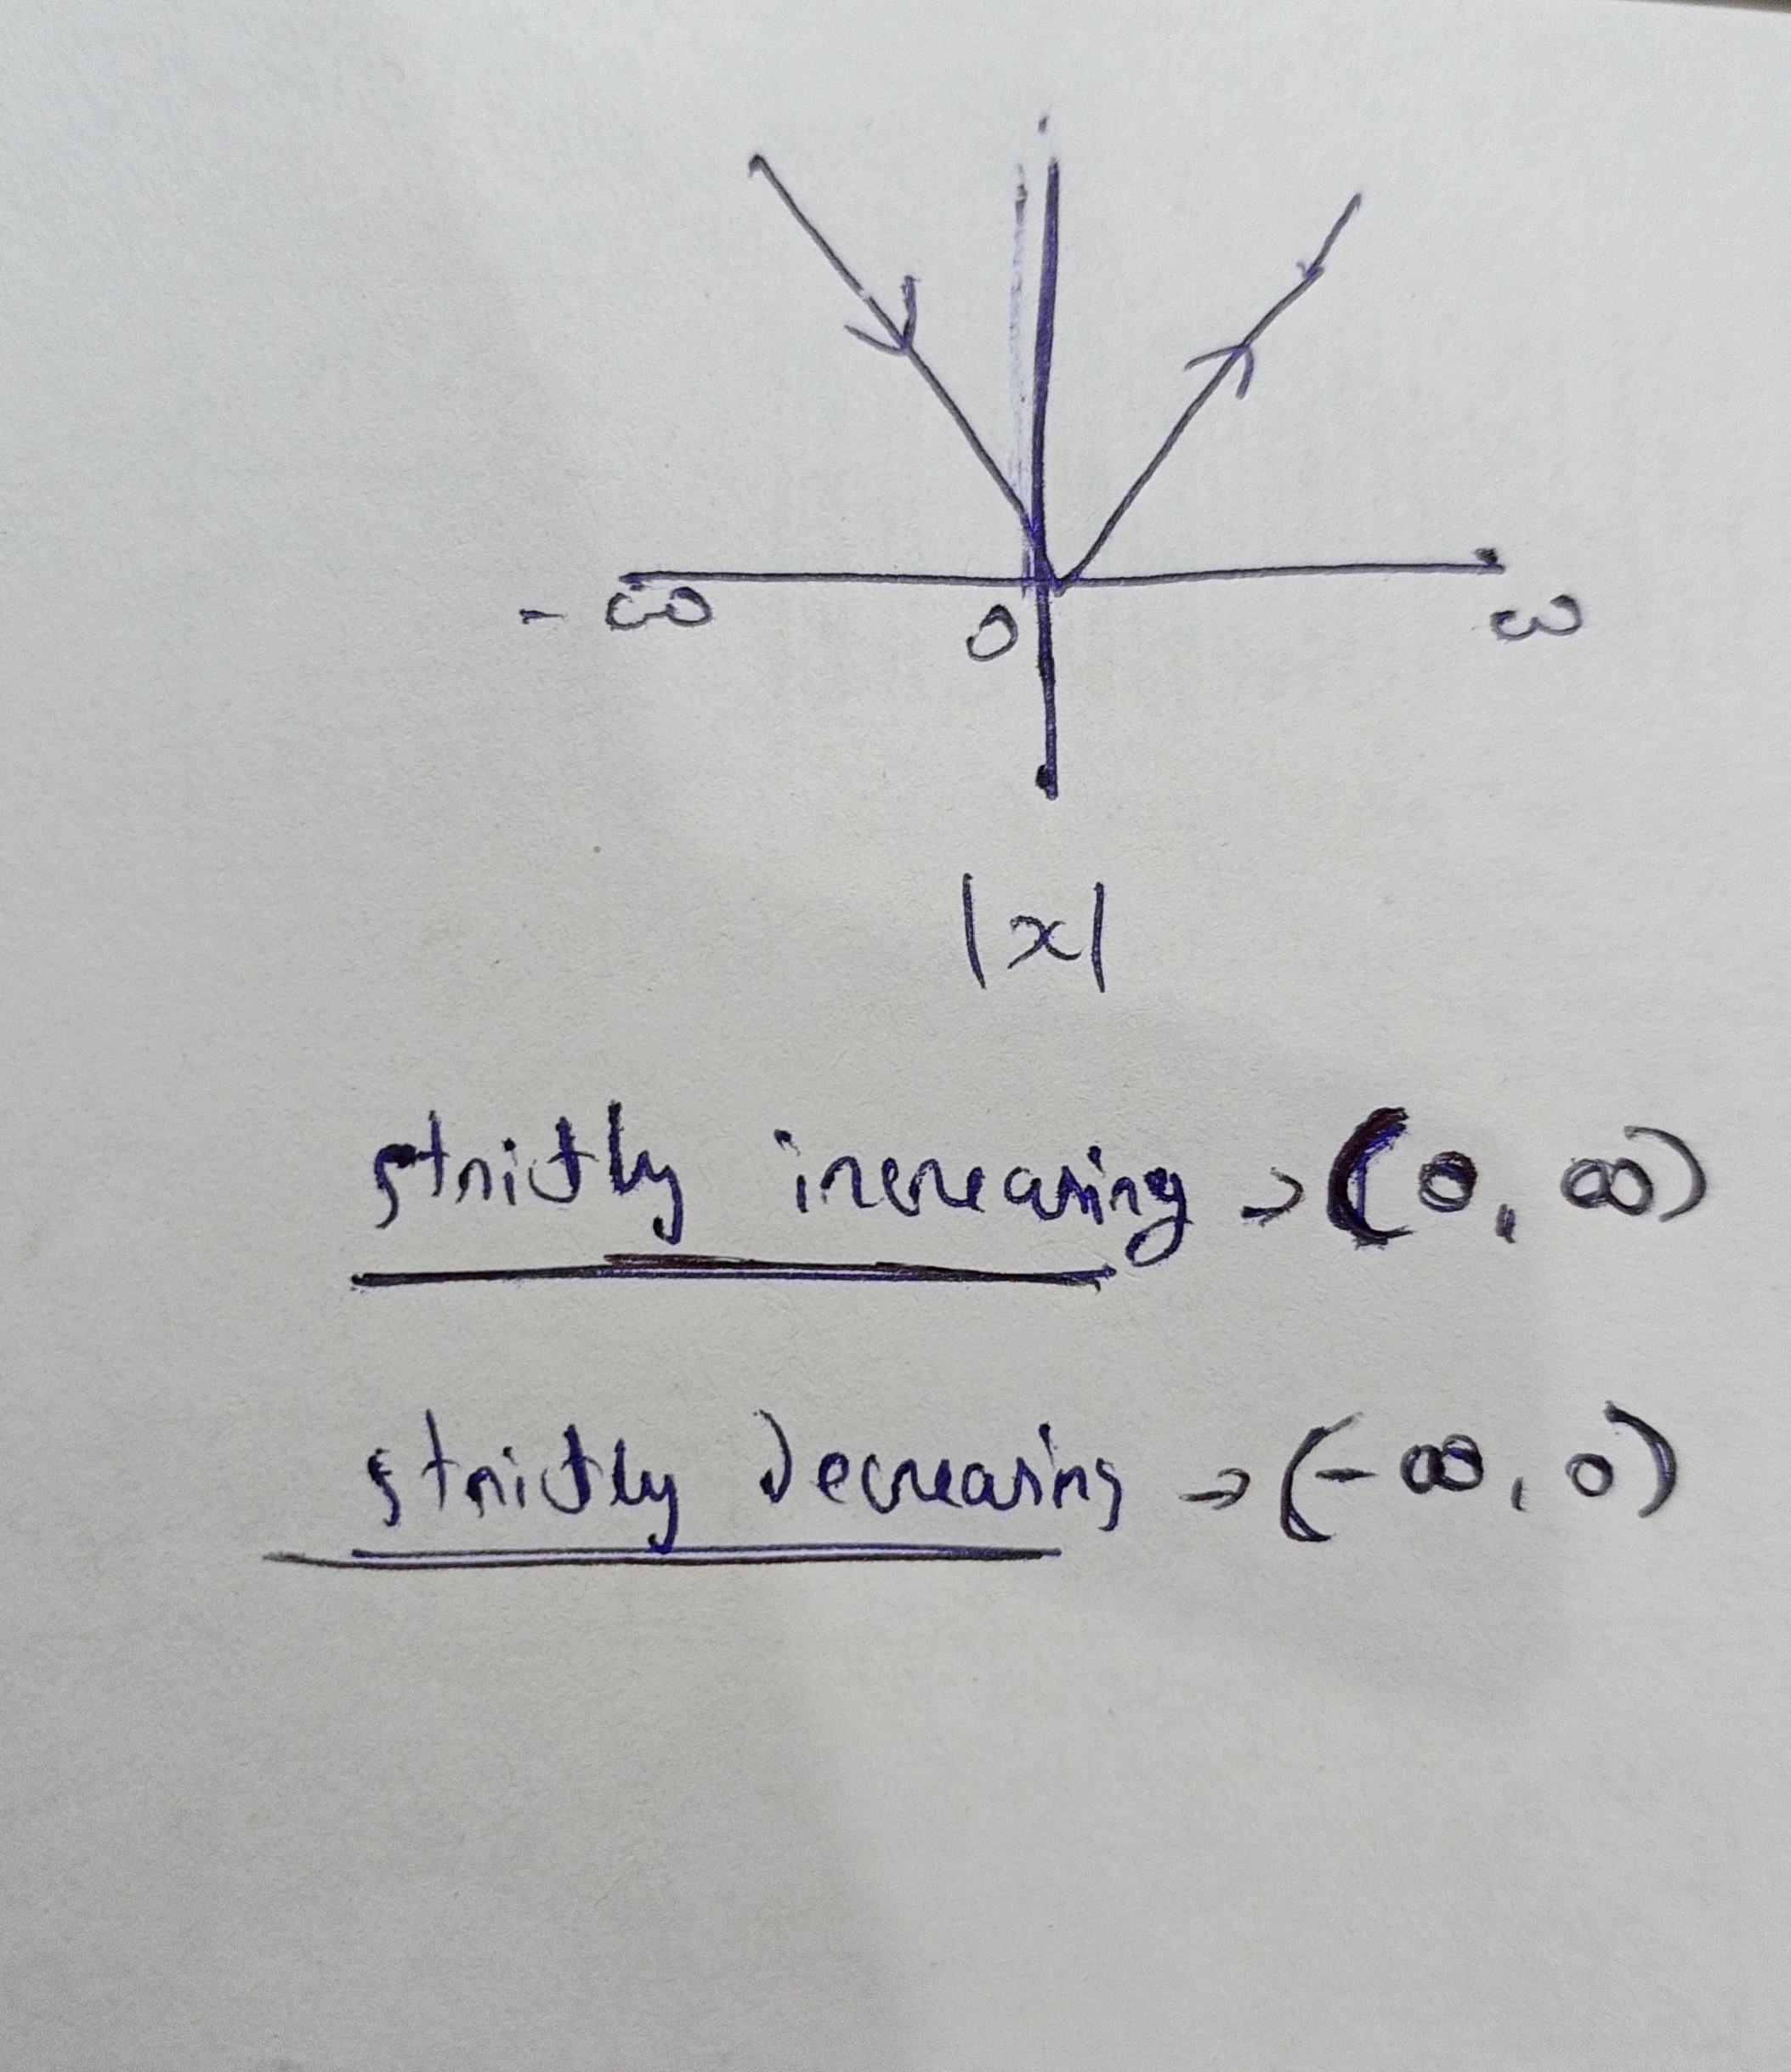 - ∞ 0 ∞
|x|
strictly increasing → (0, ∞)
strictly decreasing → (- ∞, 0)